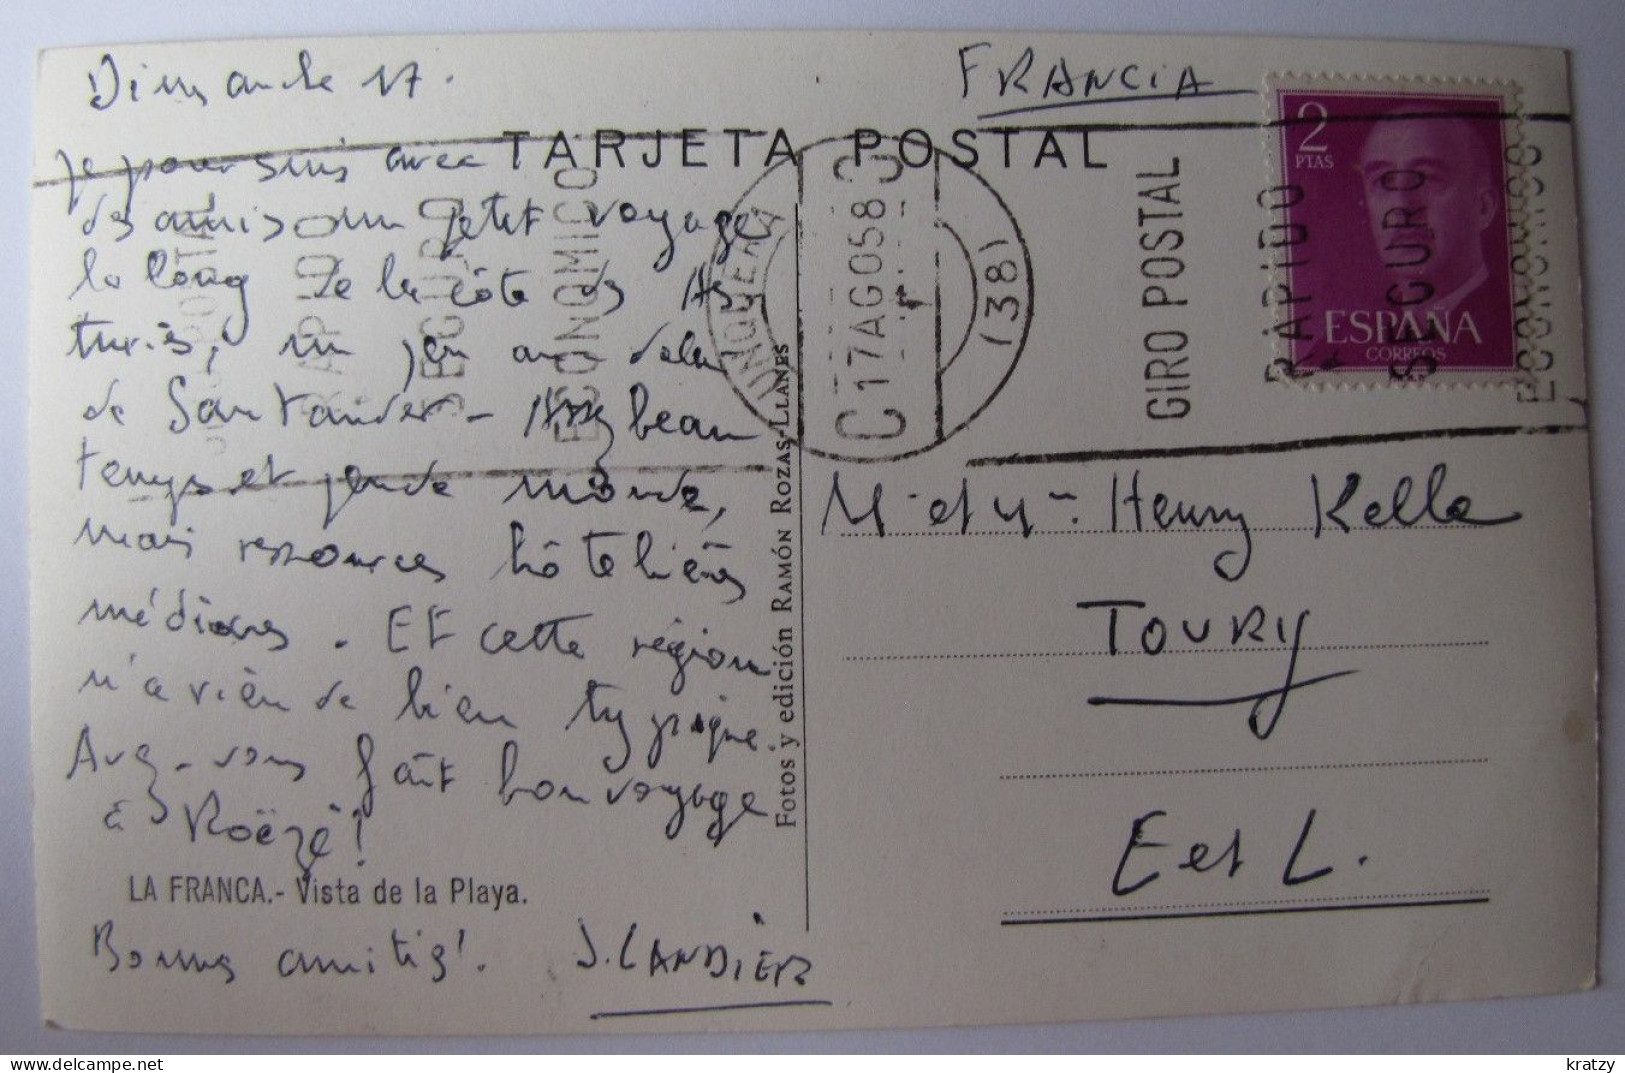 Dimanche 17.
Je poursuis avec
des amis un petit voyage
le long de la côte des As
turies, un peu au delà
de Santander - Très beau
temps et peu de monde,
mais ressources hôtelières
médiocres. Et cette région
n'a rien de bien typique.
Avez-vous fait bon voyage
à Roëzé!
LA FRANCA.- Vista de la Playa.
Bonnes amitiés!
J. LANDIER
TARJETA POSTAL
Fotos y edición RAMÓN ROZAS-LLANES
FRANCIA
UNQUERA
17AGO58
(381)
GIRO POSTAL
RAPIDO
SEGURO
ECONOMICO
2
PTAS
ESPAÑA
CORREOS
M. et Mme. Henry Kelle
TOURY
E et L.
kratzy